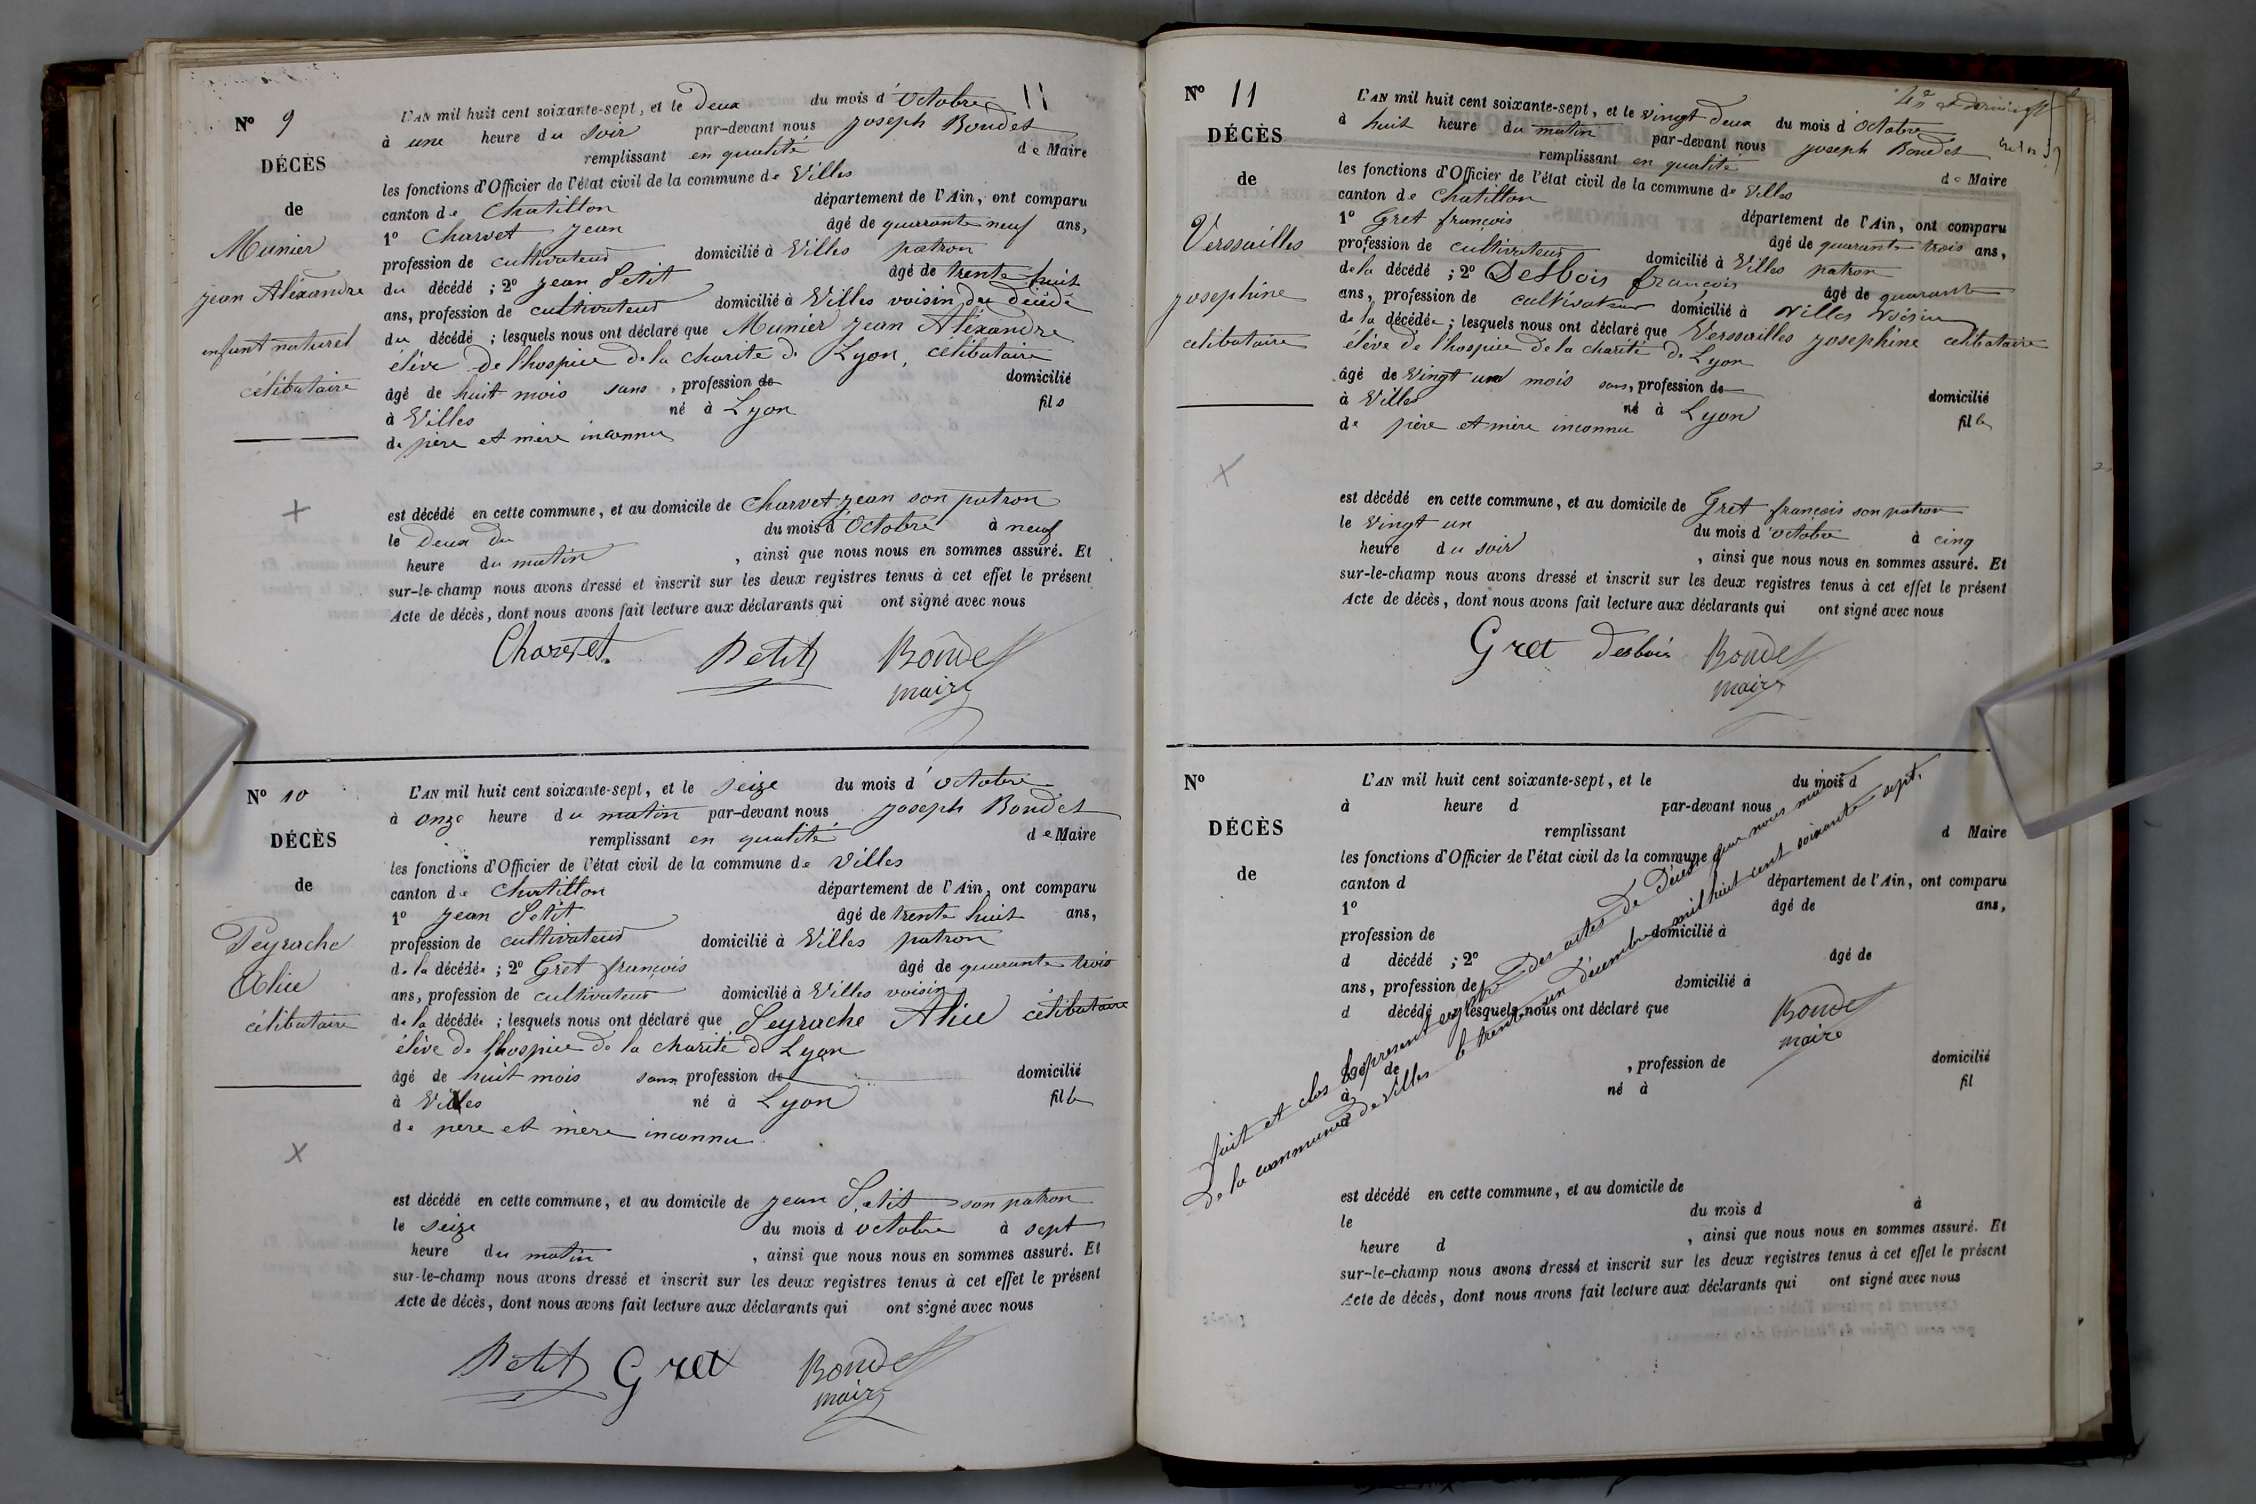 11
N° 9
DÉCÈS
de
Munier
jean Aléxandre
enfant naturel
célibataire
L'AN mil huit cent soixante-sept, et le Deux du mois d'Octobre
à une heure du soir par-devant nous joseph Boudet
remplissant en qualité de Maire
les fonctions d'Officier de l'état civil de la commune de Villes
canton de Chatillon département de l'Ain, ont comparu
1° Charvet jean âgé de quarrante neuf ans,
profession de cultivateur domicilié à Villes patron
du décédé ; 2° jean Petit âgé de trente huit
ans, profession de cultivateur domicilié à Villes voisin du décédé
du décédé ; lesquels nous ont déclaré que Munier jean Aléxandre
élève de l'hospice de la charité de Lyon, célibataire
âgé de huit mois sans, profession de domicilié
à Villes né à Lyon fils
de père et mère inconnu
est décédé en cette commune, et au domicile de Charvet jean son patron
le Deux du du mois d'Octobre à neuf
heure du matin, ainsi que nous nous en sommes assuré. Et
sur-le-champ nous avons dressé et inscrit sur les deux registres tenus à cet effet le présent
Acte de décès, dont nous avons fait lecture aux déclarants qui ont signé avec nous
Charvet Petit Boudet
maire
N° 10
DÉCÈS
de
Peyrache
Alice
célibataire
L'AN mil huit cent soixante-sept, et le seize du mois d'octobre
à onze heure du matin par-devant nous joseph Boudet
remplissant en qualité de Maire
les fonctions d'Officier de l'état civil de la commune de Villes
canton de Chatillon département de l'Ain, ont comparu
1° jean Petit âgé de trente huit ans,
profession de cultivateur domicilié à Villes patron
de la décédée ; 2° Gret françois âgé de quarante trois
ans, profession de cultivateur domicilié à Villes voisin
de la décédée ; lesquels nous ont déclaré que Peyrache Alice célibataire
élève de l'hospice de la charité de Lyon
âgé de huit mois sans profession de domicilié
à Villes né à Lyon fille
de père et mère inconnu
est décédé en cette commune, et au domicile de jean Petit son patron
le seize du mois d octobre à sept
heure du matin, ainsi que nous nous en sommes assuré. Et
sur-le-champ nous avons dressé et inscrit sur les deux registres tenus à cet effet le présent
Acte de décès, dont nous avons fait lecture aux déclarants qui ont signé avec nous
Petit Gret Boudet
maire
N° 11
DÉCÈS
de
Verssailles
josephine
célibataire
L'AN mil huit cent soixante-sept, et le vingt deux du mois d'Octobre
à huit heure du matin par-devant nous joseph Boudet
remplissant en qualité de Maire
les fonctions d'Officier de l'état civil de la commune de Villes
canton de Chatillon département de l'Ain, ont comparu
1° Gret françois âgé de quarante trois ans,
profession de cultivateur domicilié à Villes patron
de la décédé ; 2° Desbois françois âgé de quarante
ans, profession de cultivateur domicilié à Villes voisin
de la décédée ; lesquels nous ont déclaré que Verssailles josephine célibataire
élève de l'hospice de la charité de Lyon
âgé de Vingt un mois sans, profession de domicilié
à Villes né à Lyon fille
de père et mère inconnu
est décédé en cette commune, et au domicile de Gret françois son patron
le vingt un du mois d'octobre à cinq
heure du soir, ainsi que nous nous en sommes assuré. Et
sur-le-champ nous avons dressé et inscrit sur les deux registres tenus à cet effet le présent
Acte de décès, dont nous avons fait lecture aux déclarants qui ont signé avec nous
Gret Desbois Boudet
maire
N°
DÉCÈS
de
L'AN mil huit cent soixante-sept, et le du mois d
à heure d par-devant nous
remplissant d Maire
les fonctions d'Officier de l'état civil de la commune d
canton d département de l'Ain, ont comparu
1° âgé de ans,
profession de domicilié à
d décédé ; 2° âgé de
ans, profession de domicilié à
d décédé ; lesquels nous ont déclaré que
âgé de , profession de domicilié
à né à fil
d
fait et clos le present registre des actes de Décès par nous maire
de la commune de Villes le trente un Décembre mil huit cent soixante sept.
Boudet
maire
est décédé en cette commune, et au domicile de
le du mois d à
heure d , ainsi que nous nous en sommes assuré. Et
sur-le-champ nous avons dressé et inscrit sur les deux registres tenus à cet effet le présent
Acte de décès, dont nous avons fait lecture aux déclarants qui ont signé avec nous